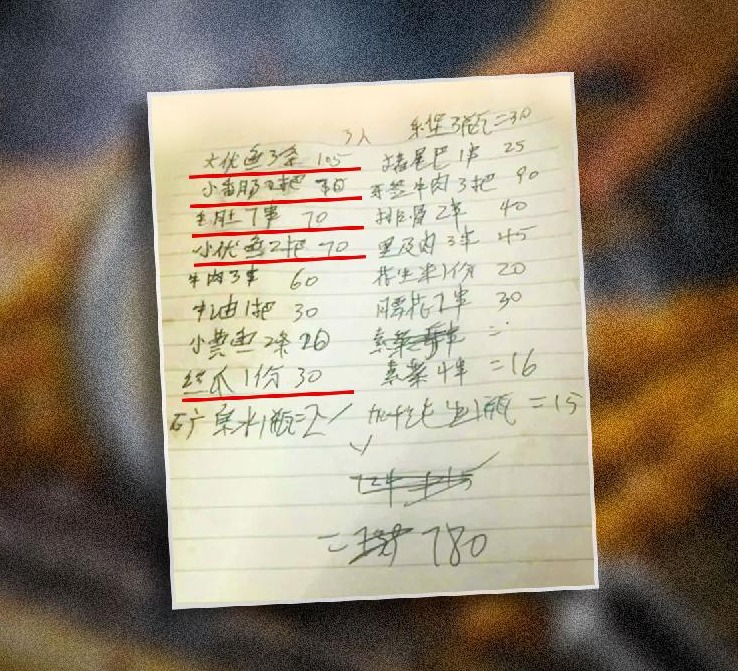 3人
乐堡3瓶=30
大优鱼3条 105
小香肠2把
毛肚7串 70
小优鱼2把 70
牛肉3串 60
牛油1把 30
小黄鱼2条
丝瓜1份 30
矿泉水1瓶=2
猪尾巴1串 25
牙签牛肉3把 90
排骨2串 40
里及肉3串 45
花生米1份 20
腰花2串 30
素菜4串 =16
1瓶 =15
= 780